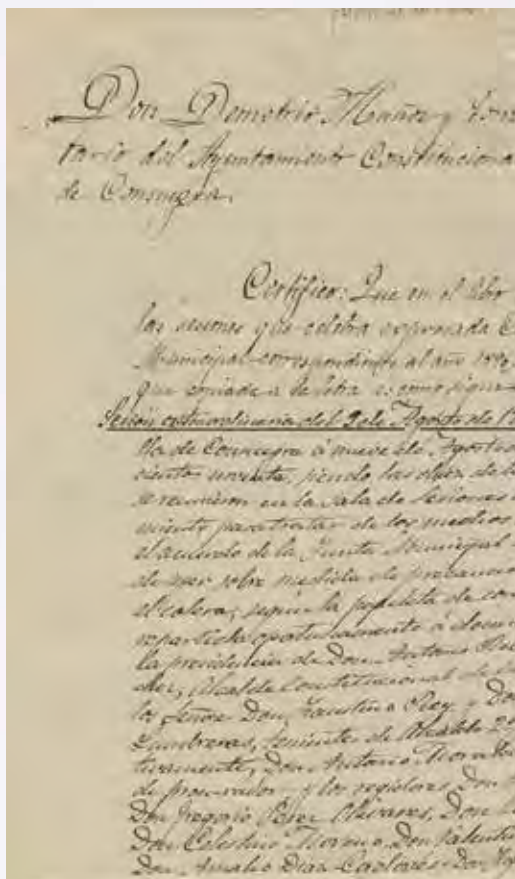 Don Demetrio Mañas y
tario del Ayuntamiento Constituciona
de Consuegra.
Certifico: Que en el libro
las sesiones que celebra expresada C
Municipal correspondiente al año 1890
que copiada a la letra es como sigue
Sesión extraordinaria del 9 de Agosto de 18
lla de Consuegra á nueve de Agosto
ciento noventa, siendo las diez de la
se reunieron en la sala de sesiones
miento para tratar de los medios
el acuerdo de la Junta Municipal
de mes sobre medida de precaucion
el colera, segun la papeleta de con
repartida oportunamente á
la presidencia de Don Antonio
Alcalde Constitucional de
los Señores Don Faustino Rey y Do
Lumbreras, tenientes de Alcalde 2º
tivamente, Don Antonio Morales
de procurador y los regidores Don
Don Gregorio Perez Olivares, Don
Don Celestino Moreno, Don Valentin
Don Amalio Diaz-Cordovés Don